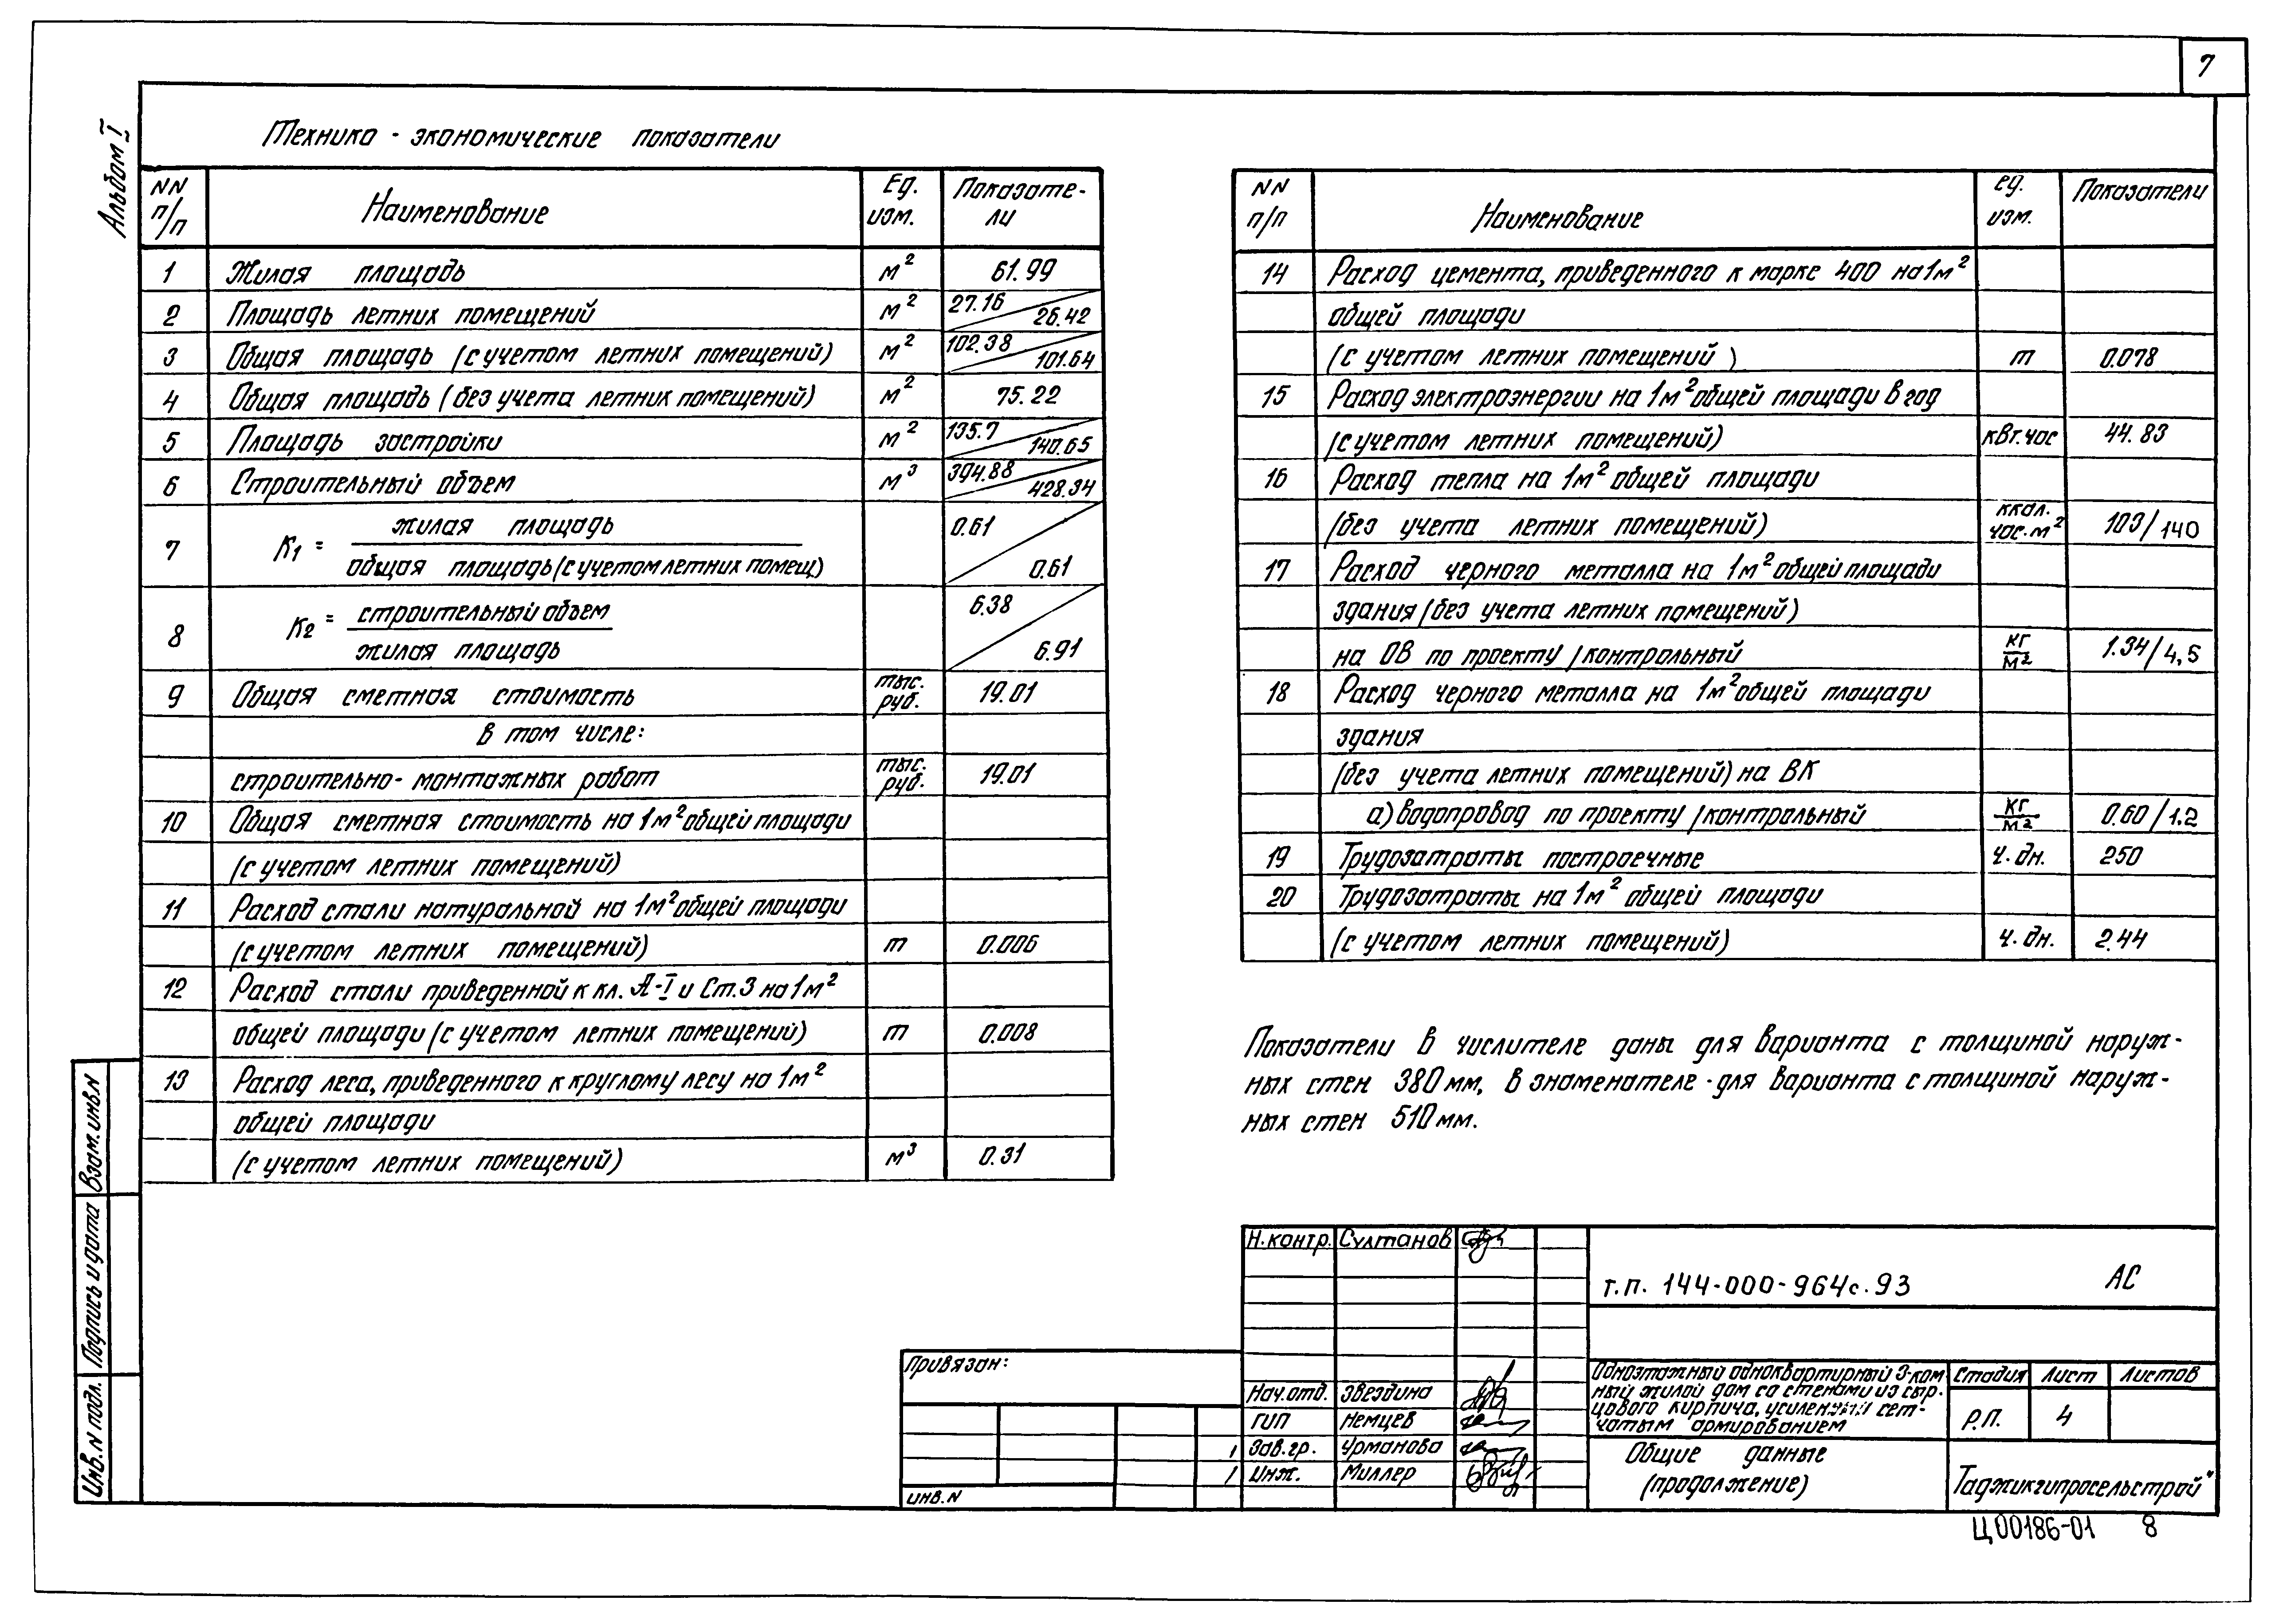 7
Альбом I
Технико - экономические показатели
NN п/п Наименование Ед. изм. Показате-ли
1 Жилая площадь м² 61.99
2 Площадь летних помещений м² 27.16 / 26.42
3 Общая площадь (с учетом летних помещений) м² 102.38 / 101.64
4 Общая площадь (без учета летних помещений) м² 75.22
5 Площадь застройки м² 135.7 / 140.65
6 Строительный объем м³ 394.88 / 428.34
7 К₁ = жилая площадь / общая площадь (с учетом летних помещ) 0.61 / 0.61
8 К₂ = строительный объем / жилая площадь 6.38 / 6.91
9 Общая сметная стоимость тыс. руб. 19.01
в том числе:
строительно-монтажных работ тыс. руб. 19.01
10 Общая сметная стоимость на 1м² общей площади
(с учетом летних помещений)
11 Расход стали натуральной на 1м² общей площади
(с учетом летних помещений) т 0.006
12 Расход стали приведенной к кл. А-I и Ст.3 на 1м²
общей площади (с учетом летних помещений) т 0.008
13 Расход леса, приведенного к круглому лесу на 1м²
общей площади
(с учетом летних помещений) м³ 0.31
NN п/п Наименование ед. изм. Показатели
14 Расход цемента, приведенного к марке 400 на 1м²
общей площади
(с учетом летних помещений) т 0.078
15 Расход электроэнергии на 1м² общей площади в год
(с учетом летних помещений) квт.час 44.83
16 Расход тепла на 1м² общей площади
(без учета летних помещений) ккал. час.м² 103/140
17 Расход черного металла на 1м² общей площади
здания (без учета летних помещений)
на ОВ по проекту /контрольный кг/м² 1.34/4,5
18 Расход черного металла на 1м² общей площади
здания
(без учета летних помещений) на ВК
а) водопровод по проекту /контрольный кг/м² 0.60/1.2
19 Трудозатраты построечные ч.дн. 250
20 Трудозатраты на 1м² общей площади
(с учетом летних помещений) ч.дн. 2.44
Показатели в числителе даны для варианта с толщиной наруж-
ных стен 380мм, в знаменателе - для варианта с толщиной наруж-
ных стен 510мм.
Взам.инв.N
Подпись и дата
Инв.N подл.
Привязан:
инв.N
Н.контр. Султанов
Нач.отд. Звездина
ГИП Немцев
Зав.гр. Урманова
Инж. Миллер
т.п. 144-000-964с.93 АС
Одноэтажный одноквартирный 3-ком
ный жилой дом со стенами из сыр-
цового кирпича, усиленный сет-
чатым армированием
Стадия Лист Листов
Р.П. 4
Общие данные
(продолжение)
Таджикгипросельстрой"
Ц00186-01 8